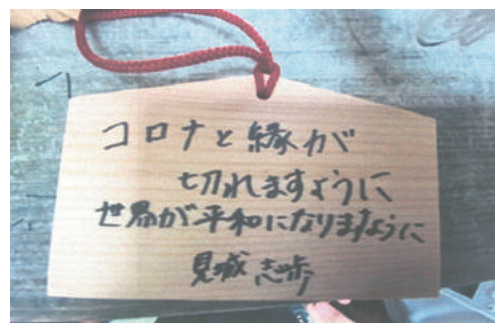 コロナと縁が
切れますように
世界が平和になりますように
見城 志歩